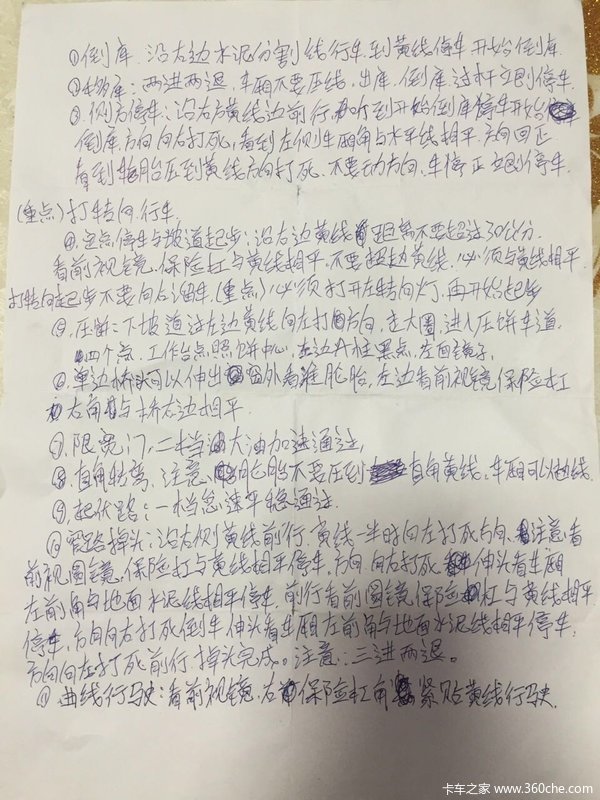 ①倒库：沿右边水泥分割线行车到黄线停车开始倒库.
②移库：两进两退，车厢不要压线，出库，倒库过杆立刻停车.
③侧方停车：沿右后黄线边前行，听到开始倒库停车开始
倒库,方向向右打死,看到左侧车厢角与水平线相平,方向回正.
看到轮胎压到黄线方向打死、不要动方向、车停正立刻停车.
(重点)打转向.行车.
④定点停车与坡道起步：沿右边黄线距离不要超过30公分.
看前视镜,保险杠与黄线相平,不要超过黄线.必须与黄线相平
打转向起步不要向后溜车.(重点)必须打开左转向灯,再开始起步
⑤压饼：下坡道过左边黄线向左打方向,走大圈,进入压饼车道.
四个点.工作台点照饼中心，左边升柱黑点，左面镜子.
⑥单边桥头可以伸出外看准轮胎，左边看前视镜保险杠
右角与桥右边相平
⑦限宽门,二档油大油加速通过,
⑧直角转弯、注意、轮胎不要压到直角黄线.车厢可以曲线.
⑨起伏路：一档怠速平稳通过.
⑩窄路掉头：沿右侧黄线前行.黄线一半时向左打死方向.注意看
前视圆镜,保险杠与黄线相平停车,方向向右打死伸头看车厢
左前角与地面水泥线相平停车.前行看前圆镜,保险杠与黄线相平
停车,方向向右打死倒车伸头看车厢左前角与地面水泥线相平停车.
方向向左打死前行掉头完成。注意：三进两退。
⑪曲线行驶：看前视镜,右保险杠角紧贴黄线行驶.
卡车之家 www.360che.com